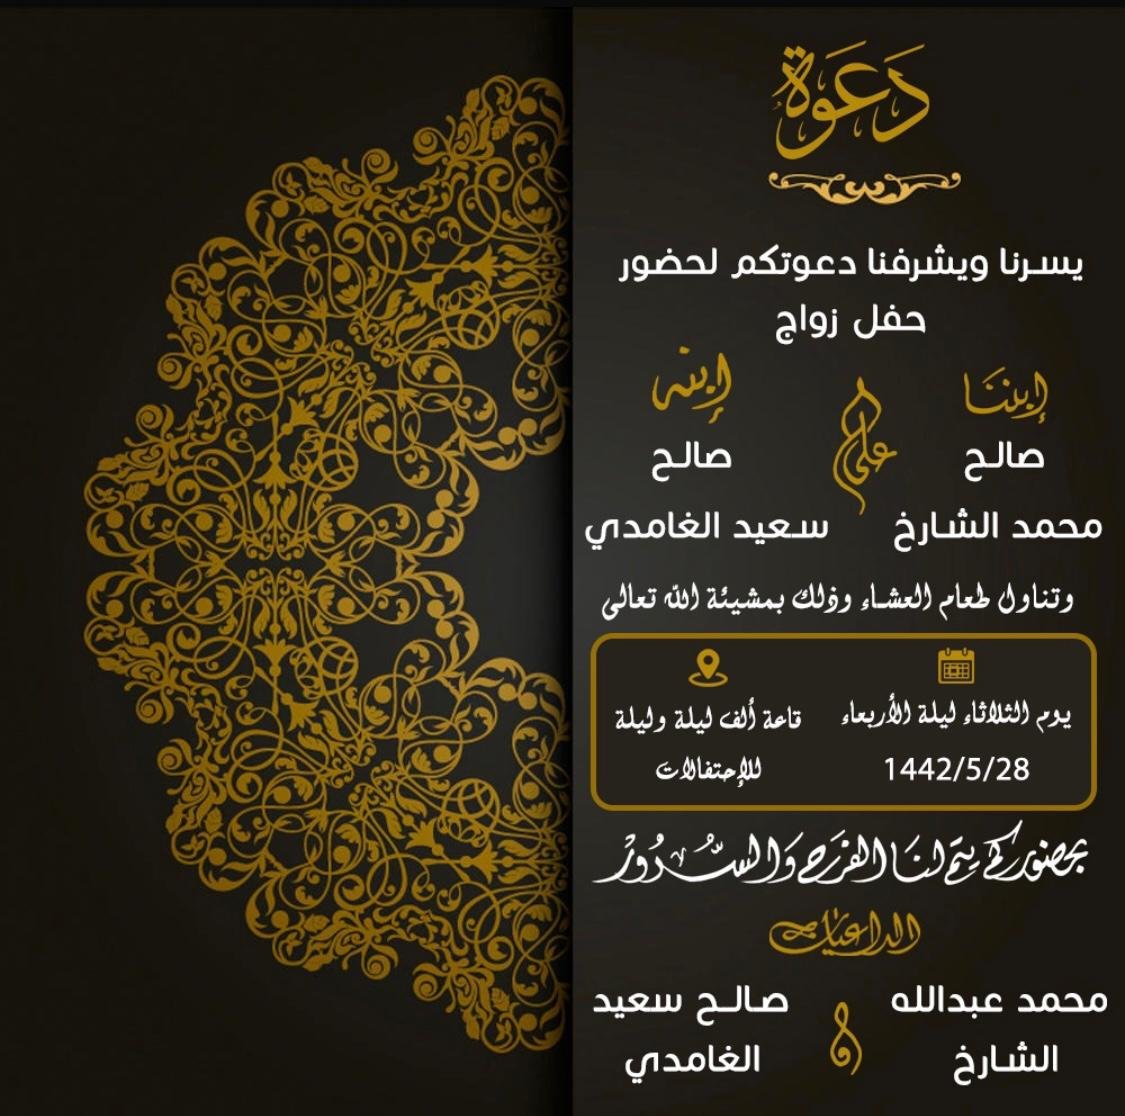 دَعْوَة
يسرنا ويشرفنا دعوتكم لحضور
حفل زواج
إبننا
صالح
محمد الشارخ
على
إبنه
صالح
سعيد الغامدي
وتناول طعام العشاء وذلك بمشيئة الله تعالى
يوم الثلاثاء ليلة الأربعاء
1442/5/28
قاعة ألف ليلة وليلة
للإحتفالات
بحضوركم يتم لنا الفرح والسرور
الداعيان
محمد عبدالله
الشارخ
و
صالح سعيد
الغامدي